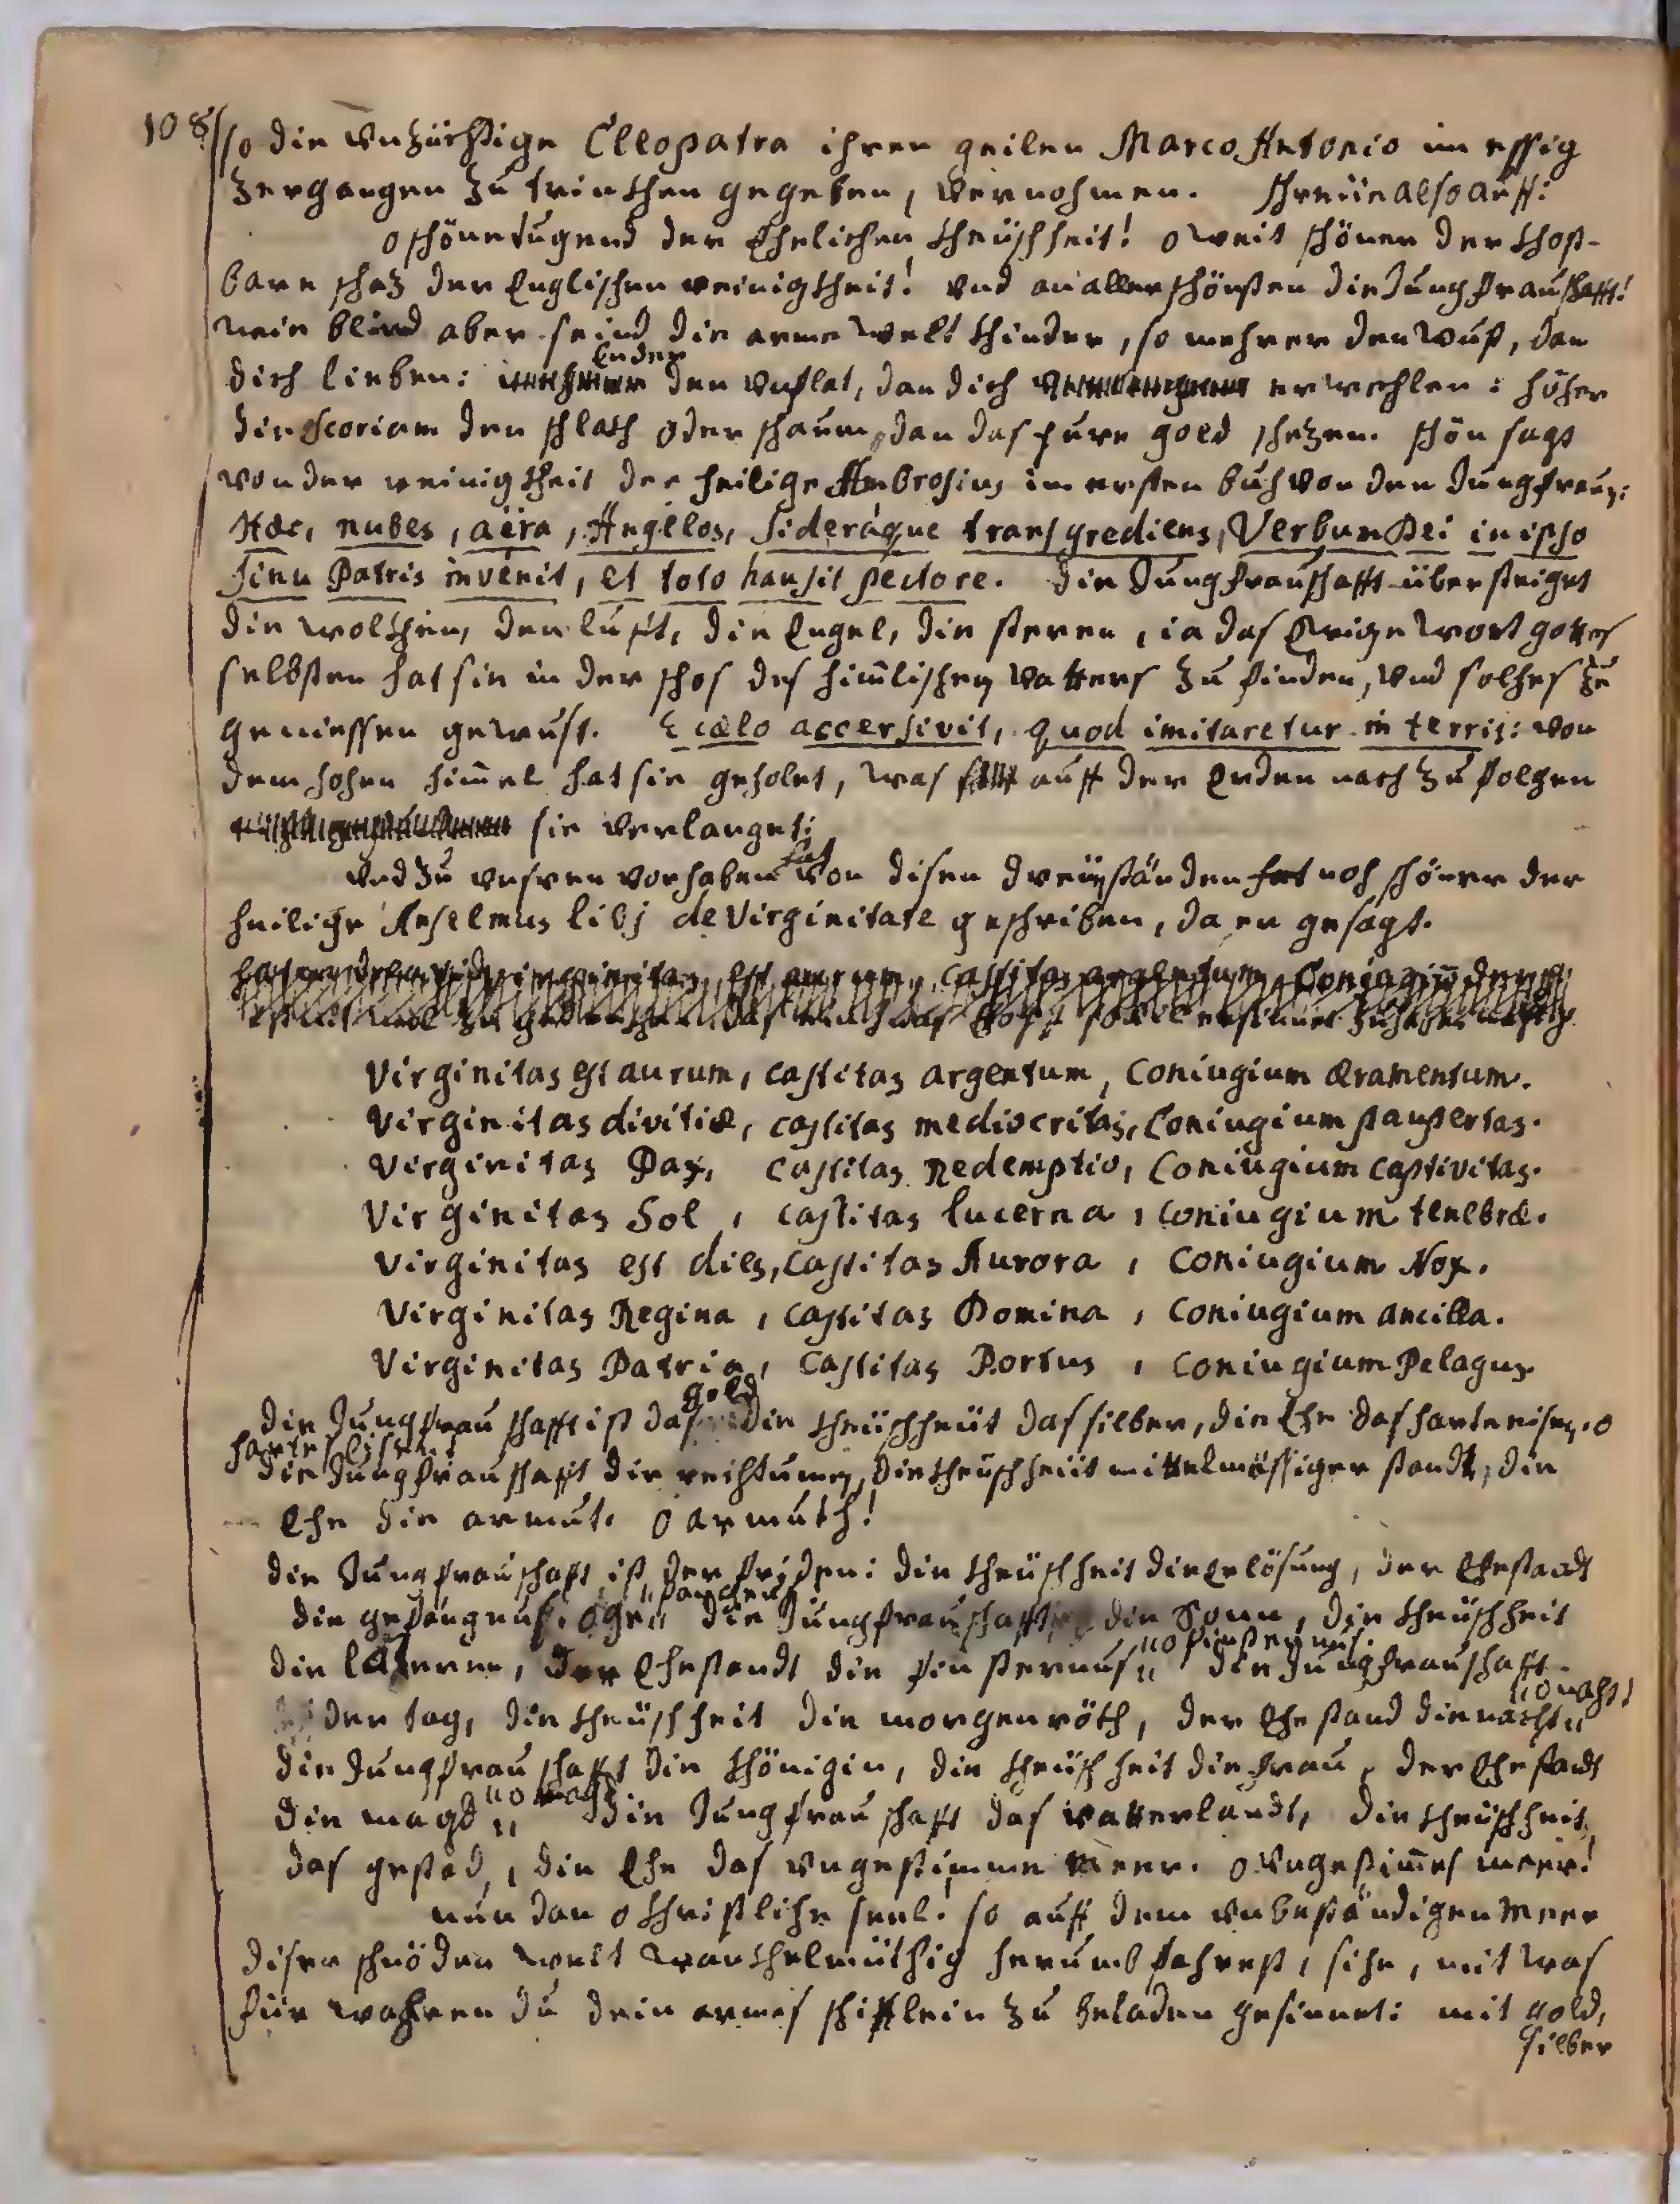 108 so die unzüchtige Cleopatra ihren geilen Marco Antonio im essig
zergangen zu trinckhen gegeben, vernohmen. schreiie also auff:
o schöne tugend der Ehelichen kheüschheit! o weit schöner der khost-
bare schaz der Englischen reinigkheit! und an allerschönsten die Jungfrauschafft!
wie blind aber seind die arme welt khinder, so mehrer den wust, dan
dich lieben: ender den unflat, dan dich erwehlen: höher
die scoriam den schlakh oder schaum, dan das pure gold schezen. schön sagt
von der reinigkheit der heilige Ambrosius im ersten buch von den Jungfrauen:
Hæc, nubes, aëra, Angelos, sideráque transgrediens, Verbum Dei in ipso
sinu Patris invênit, et toto hausit pectore. die Jungfrauschafft übersteiget
die wolkhen, den luft, die Engel, die steren, ia das Ewige wort gottes
selbsten hat sie in der schos des him̄lischen vatters zu finden, und solches zu
geniessen gewust. E cælo accersivit, quod imitaretur in terris: von
dem hohen him̄el hat sie geholet, was auff der Erden nach zu folgen
sie verlanget:
und zu unsren vorhaben hat von disen dreÿ ständen noch schöner der
heilige Anselmus lib j de Virginitate geschriben, da er gesagt.
Virginitas est aurum, castitas argentum, Coniugium æramentum.
Virginitas divitiæ, castitas mediocritas, Coniugium paupertas.
Virginitas Pax, castitas Redemptio, Coniugium captivitas.
Virginitas Sol, castitas lucerna, Coniugium tenebræ.
Virginitas est dies, castitas Aurora, Coniugium Nox.
Virginitas Regina, castitas Domina, Coniugium ancilla.
Virginitas Patria, Castitas Portus, Coniugium Pelagus.
die Jungfrauschafft ist das gold die kheüschheüt das silber, die Ehe das harte eisen. o
die Jungfrauschaft die reichtumen, die kheüschheüt mittelmössiger standt, die
Ehe die armut. o armuth!
die Jungfrauschaft ist der friden: die kheüschheit die erlösung, der Ehestandt
die gefängnus. die Jungfrauschafft die Sonn, die kheüschheit
die laterne, der Ehestandt die finsternus " o finsternus. die Jungfrauschafft
der tag, die kheüschheit die morgenröth, der Ehestand die nacht " o nacht!
die Jungfrauschafft die khönigin, die kheüschheit die frau, der Ehestandt
die magd " o magd die Jungfrauschafft das vatterlandt, die kheüschheit
das gestad, die Ehe das ungestimme meer. o ungestim̄es meer!
nun dan o khristliche seel! so auff dem unbeständigen meer
diser schnöden welt wankhelmüthig herumb fahrest, sihe, mit was
für wahren du dein armes schifflein zu beladen gesinnet: mit gold,
silber